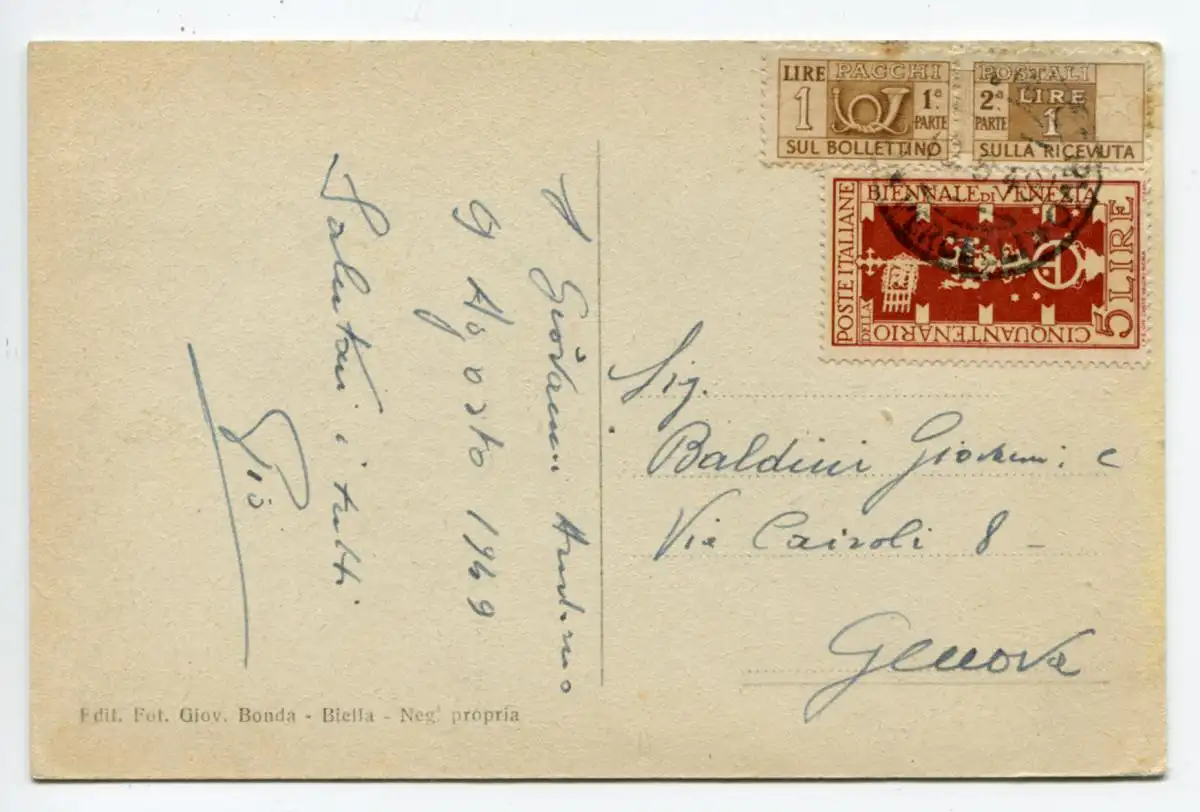 LIRE
1
PACCHI
1ª
PARTE
SUL BOLLETTINO
POSTALI
2ª
PARTE
LIRE
1
SULLA RICEVUTA
BIENNALE DI VENEZIA
POSTE ITALIANE
DELLA
CINQUANTENARIO
5 LIRE
S. Giovanni Andorno
9 Agosto 1949
Saluti i tutti
Giò
Sig.
Baldini Giovanni e
Via Cairoli 8 -
Genova
Edit. Fot. Giov. Bonda - Biella - Neg.ª propria